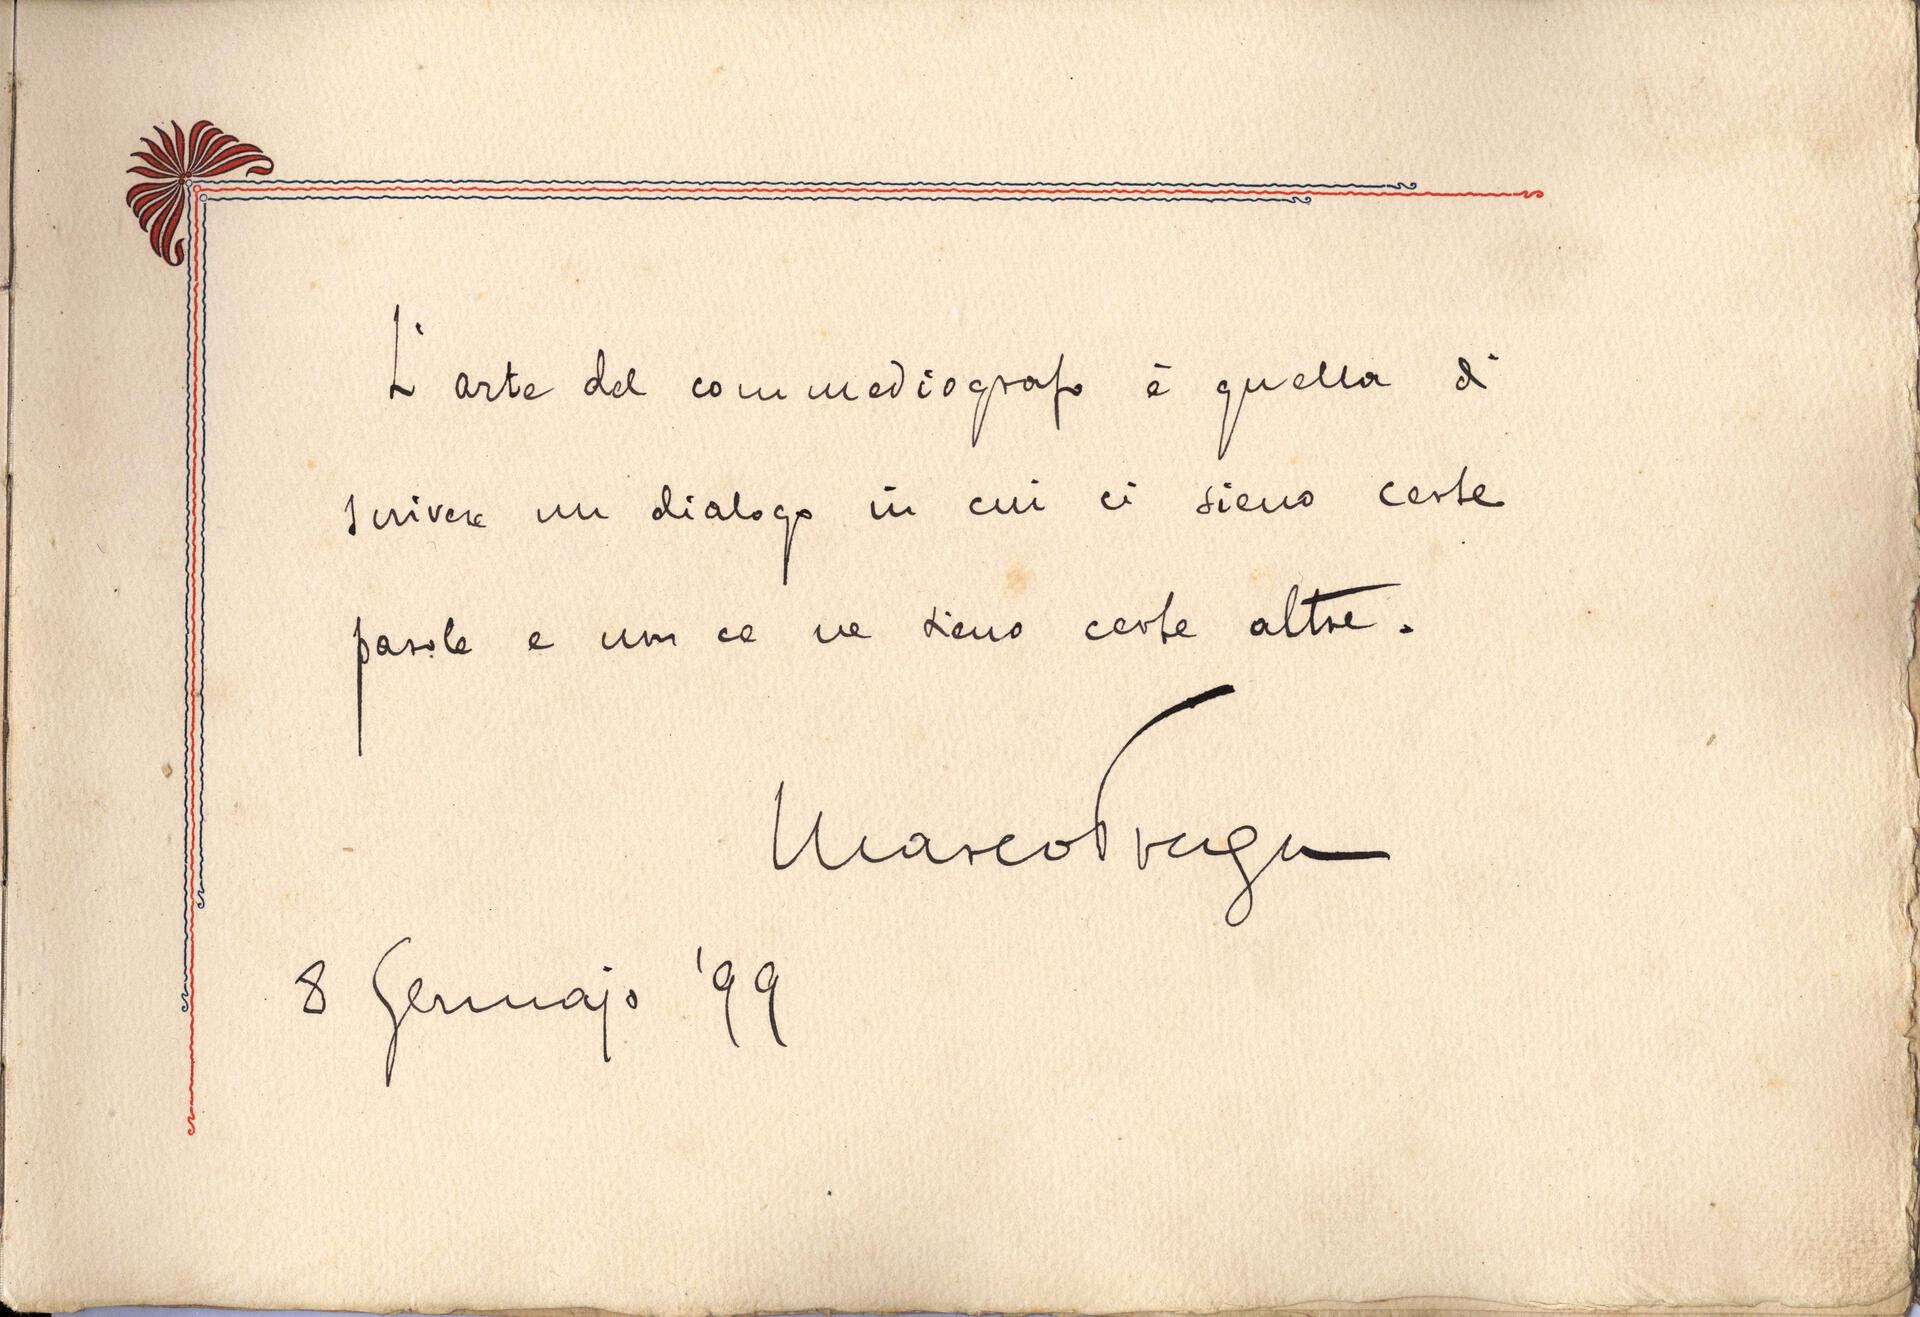 L'arte del commediografo è quella di
scrivere un dialogo in cui ci sieno certe
parole e non ce ne sieno certe altre.
Marco Praga
8 Gennajo '99